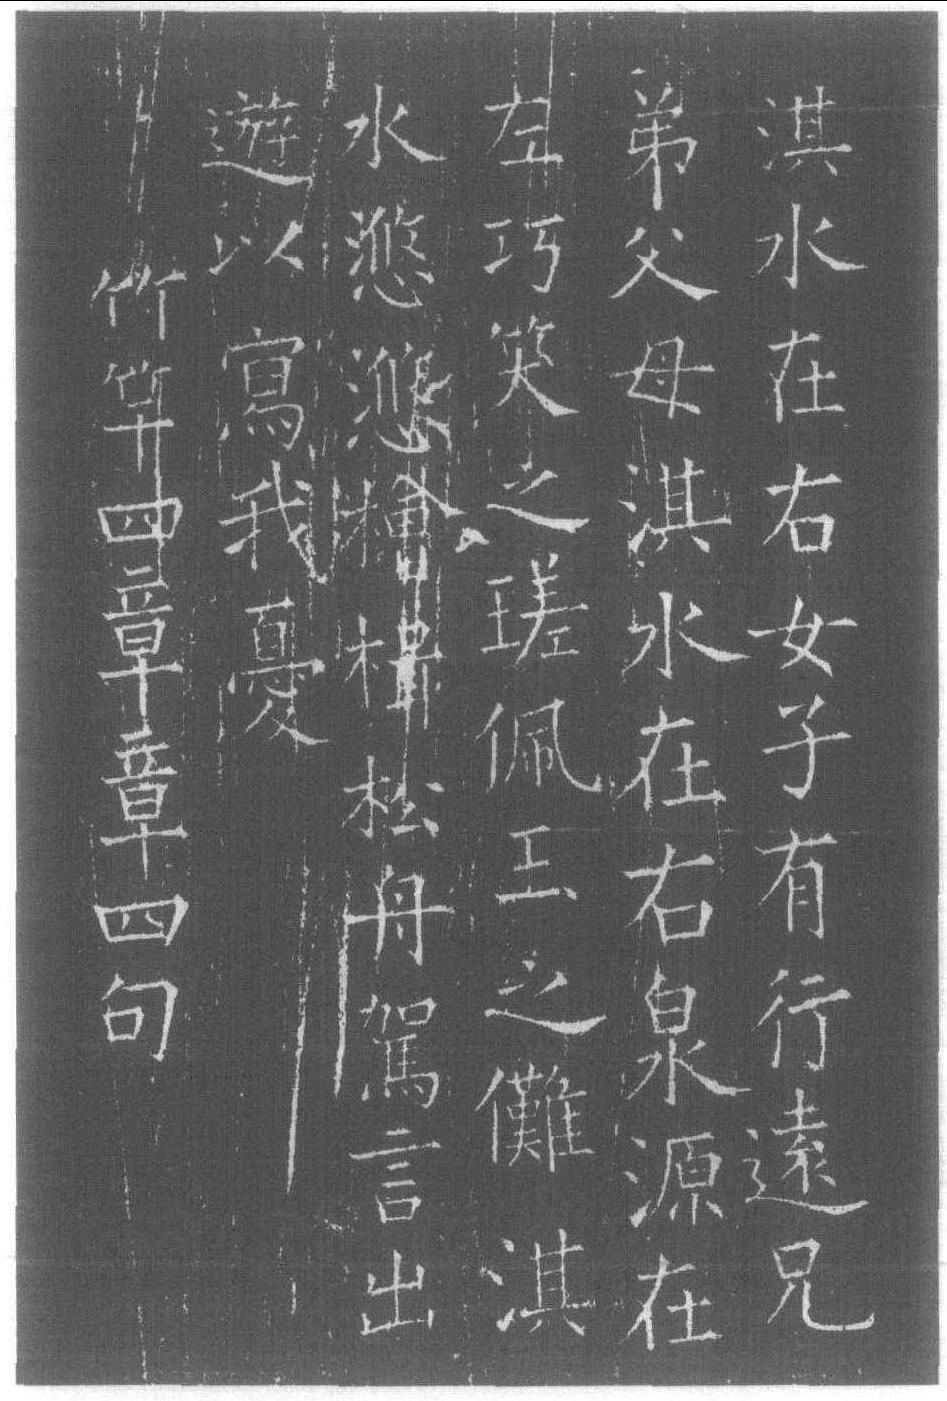 淇水在右女子有行遠兄
弟父母淇水在右泉源在
左巧笑之瑳佩玉之儺淇
水滺滺檜楫松舟駕言出
遊以寫我憂
竹竿四章章四句